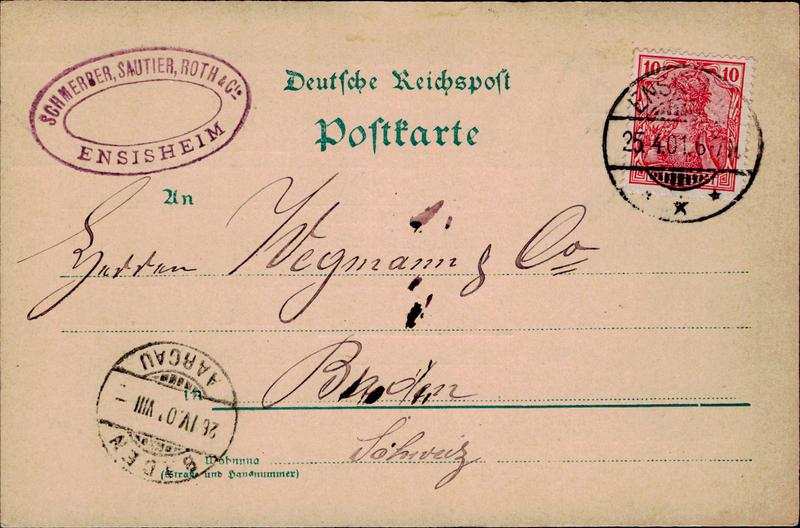 SCHMERBER, SAUTIER, ROTH & Cie
ENSISHEIM
Deutsche Reichspost
Postkarte
10 10
25.4.01.6-7N.
An
Herren Wegmann & Co
in Baden
Schweiz
Wohnung
(Straße und Hausnummer)
AARGAU
26.IV.01.VIII-
BADEN